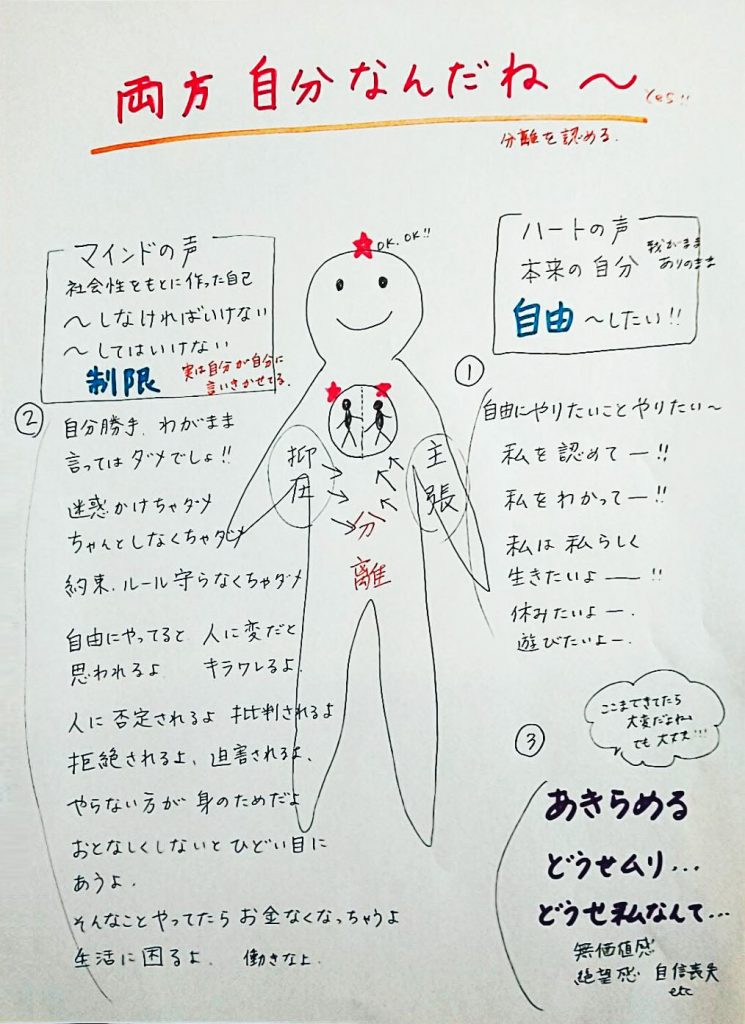 両方 自分なんだね〜
Yes!!
分離を認める.
マインドの声
社会性をもとに作った自己
〜しなければいけない
〜してはいけない
制限
実は自分が自分に
言いきかせてる.
OK.OK!!
ハートの声
本来の自分
我がまま
ありのまま
自由 〜したい!!
①
自由にやりたいことやりたい〜
私を認めてー!!
私をわかってー!!
私は私らしく
生きたいよー!!
休みたいよー.
遊びたいよー.
②
自分勝手、わがまま
言ってはダメでしょ!!
迷惑かけちゃダメ
ちゃんとしなくちゃダメ
約束、ルール守らなくちゃダメ
自由にやってると 人に変だと
思われるよ キラワレるよ.
人に否定されるよ 批判されるよ
拒絶されるよ、迫害されるよ.
やらない方が身のためだよ
おとなしくしないとひどい目に
あうよ.
そんなことやってたらお金なくなっちゃうよ
生活に困るよ. 働きなよ.
抑圧
主張
分離
③
ここまできてたら
大変だよね
でも大丈夫!!!
あきらめる
どうせムリ...
どうせ私なんて...
無価値感
絶望感 自信喪失
etc